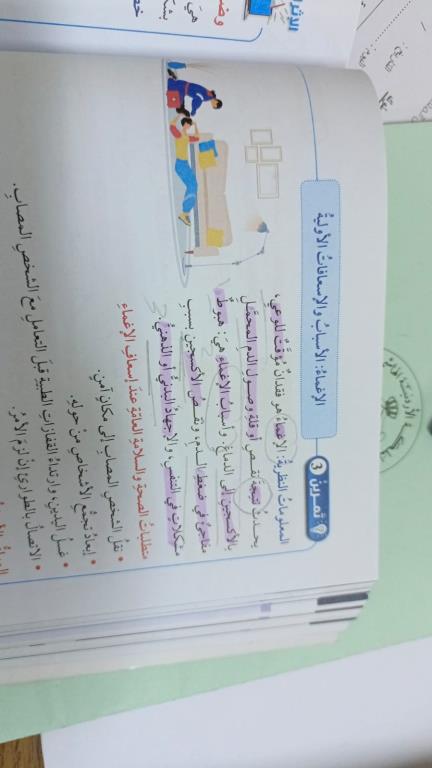 تمرينٌ 3
الإغماءُ: الأسبابُ والإسعافاتُ الأوليةُ
المعلوماتُ النظريةُ: الإغماءُ هو فقدانٌ مُؤقَّتٌ للوعي،
يحدثُ نتيجةَ نقصِ أو قلةِ وصولِ الدمِ المحمَّلِ
بالأكسجينِ إلى الدماغِ، وأسبابُ الإغماءِ هيَ: هبوطٌ
مفاجئٌ في ضغطِ الدمِ، ونقصُ الأكسجينِ بسببِ
مشكلاتٍ في التنفسِ، والإجهادُ البدنيُّ أو الذهنيُّ.
متطلباتُ الصحةِ والسلامةِ العامةِ عندَ إسعافِ الإغماءِ
• نقلُ الشخصِ المصابِ إلى مكانٍ آمنٍ.
• إبعادُ تجمعِ الأشخاصِ منْ حولِهِ.
• غسلُ اليدينِ، وارتداءُ القفازاتِ الطبيةِ قبلَ التعاملِ معَ الشخصِ المصابِ.
• الاتصالُ بالطوارئِ إنْ لزمَ الأمرُ.